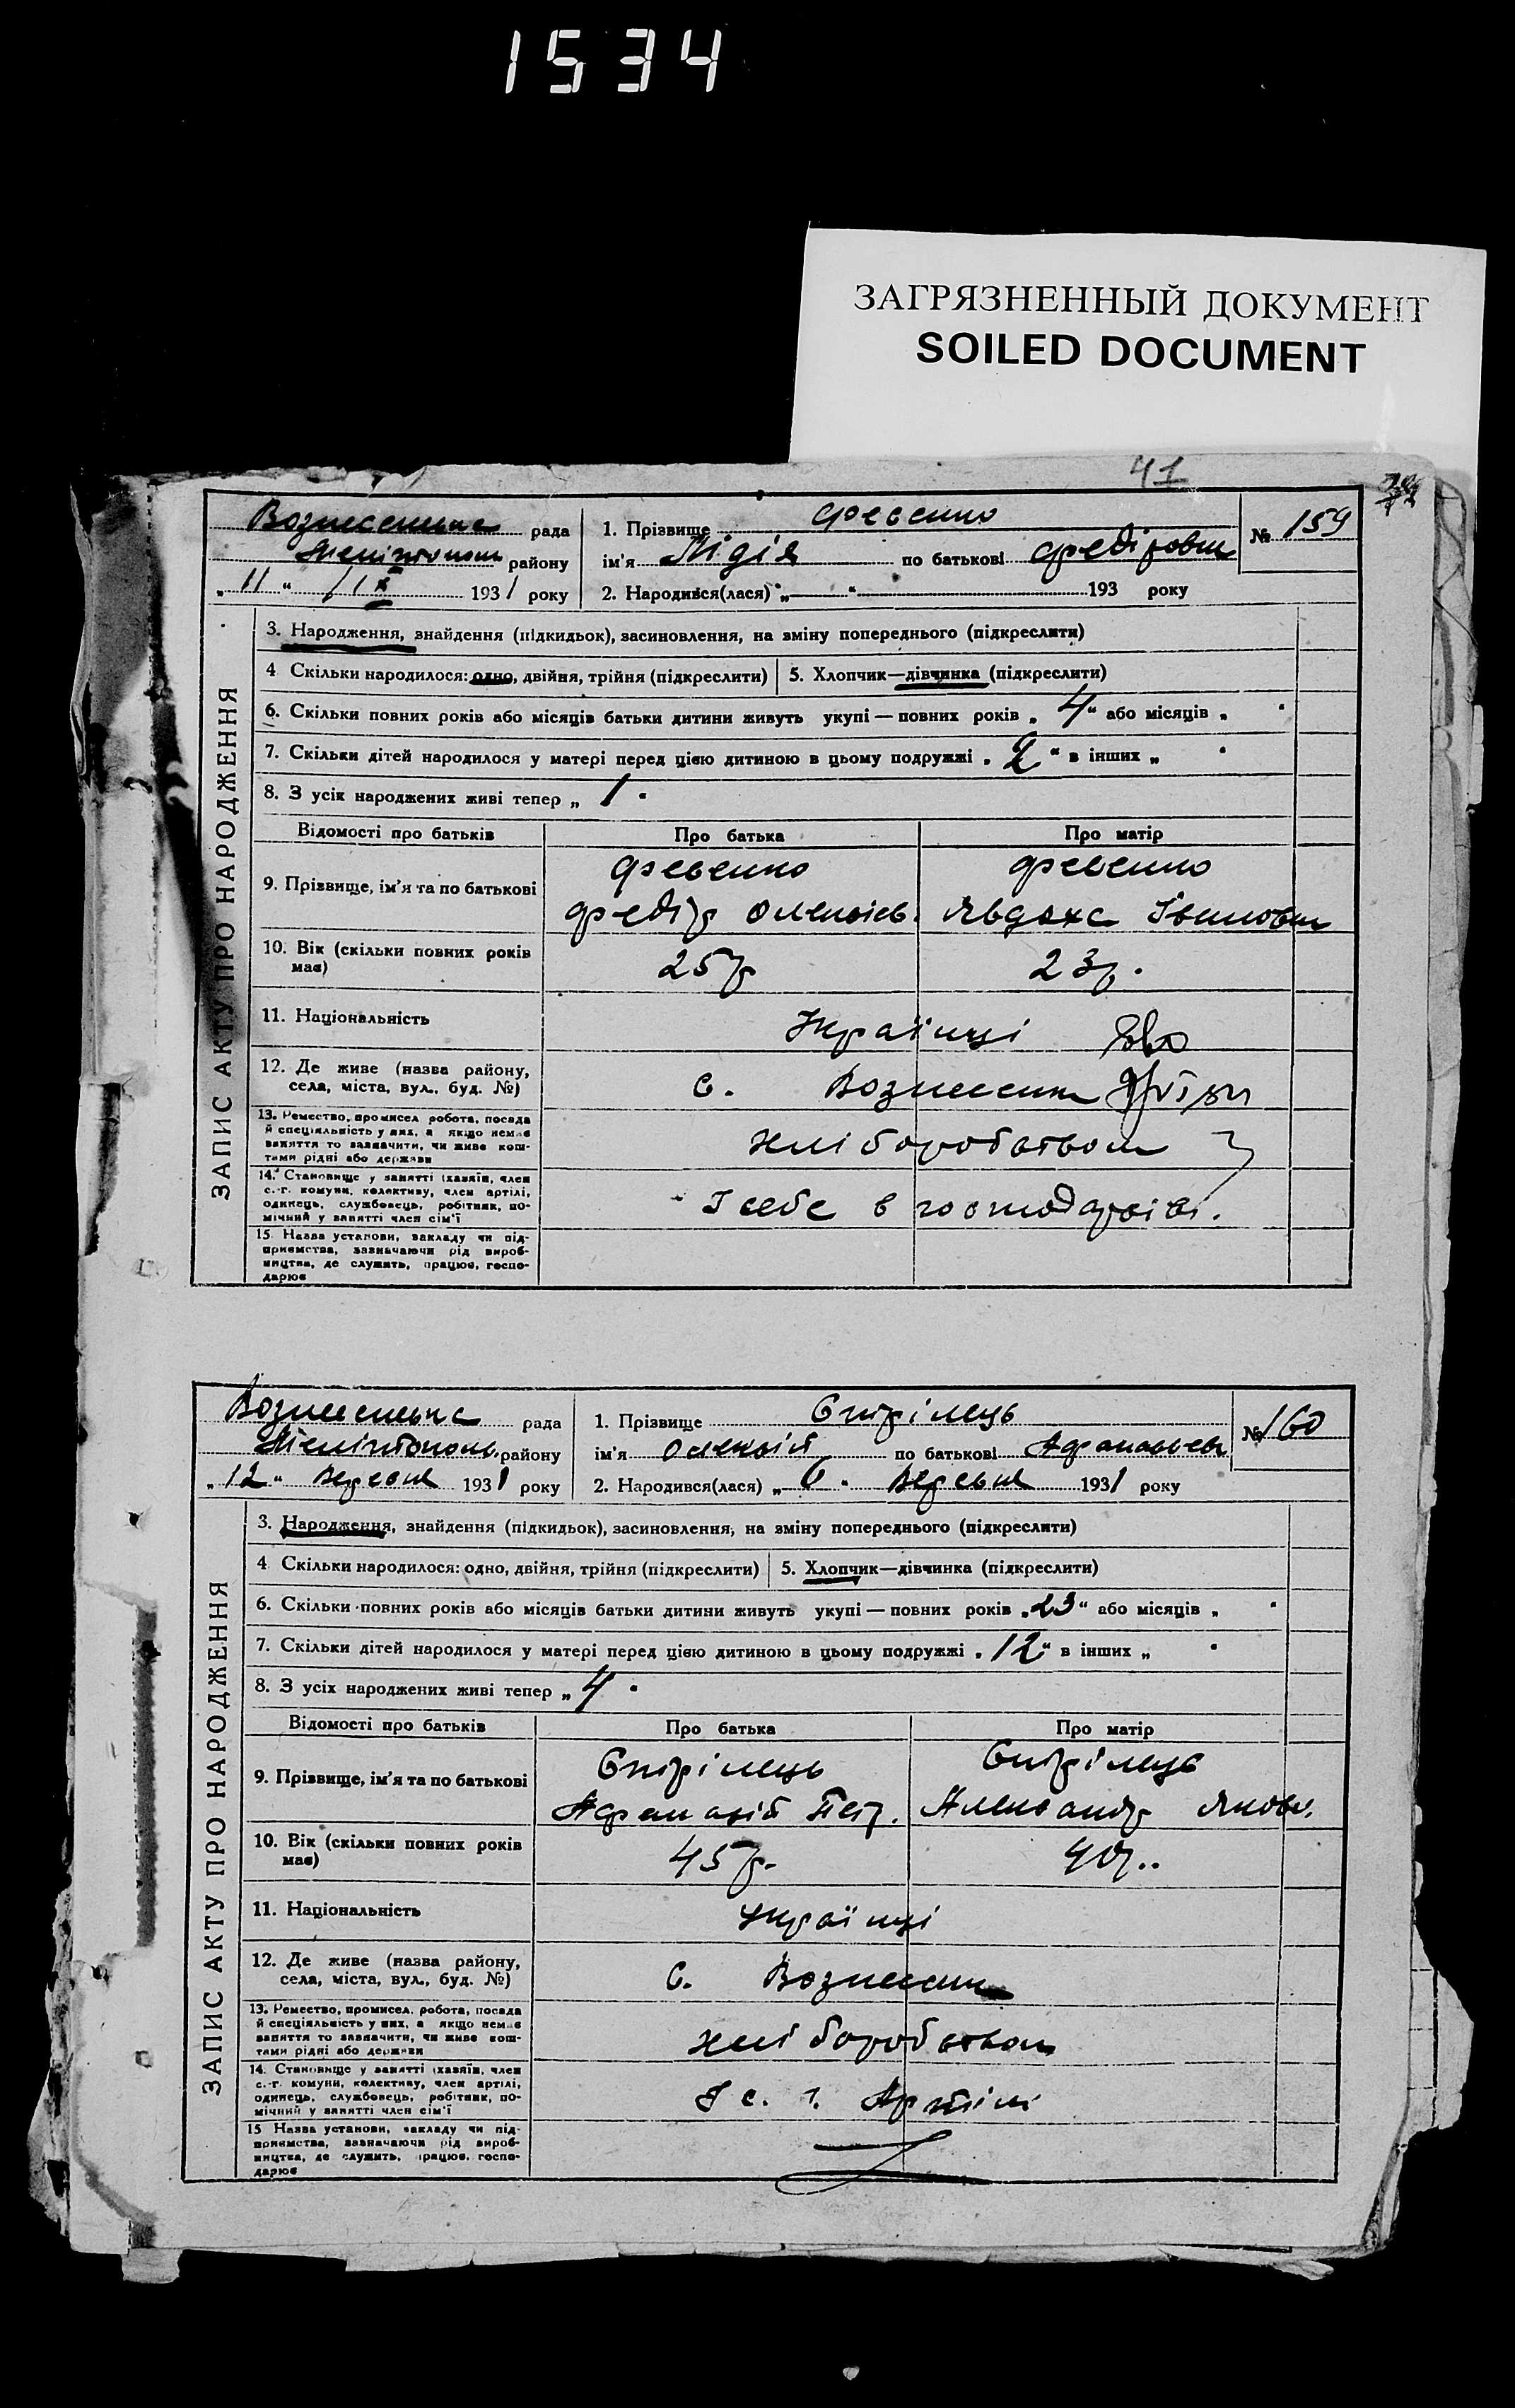 1534
ЗАГРЯЗНЕННЫЙ ДОКУМЕНТ
SOILED DOCUMENT
41
ЗАПИС АКТУ ПРО НАРОДЖЕННЯ
Вознесенська рада
Мелітопол району
„11“ /IX 1931 року
1. Прізвище Февенко
№ 159
ім'я Лідія по батькові Федіровн
2. Народився(лася) „ “ 193 року
3. Народження, знайдення (підкидьок), засиновлення, на зміну попереднього (підкреслити)
4 Скільки народилося: одно, двійня, трійня (підкреслити) 5. Хлопчик—дівчинка (підкреслити)
6. Скільки повних років або місяців батьки дитини живуть укупі — повних років „4“ або місяців „
7. Скільки дітей народилося у матері перед цією дитиною в цьому подружжі „2“ в інших „
8. З усіх народжених живі тепер „1
Відомості про батьків Про батька Про матір
9. Прізвище, ім'я та по батькові Февенко Февенко
Федір Олексієв. Явдоха Івановн
10. Вік (скільки повних років має) 25 р 23 р.
11. Національність Українці
12. Де живе (назва району, села, міста, вул., буд. №) с. Вознесенк
13. Ремество, промисел робота, посада
й спеціяльність у них, а якщо немає
заняття то зазначити, чи живе кош-
тами рідні або держави
хліборобством
14. Становище у занятті (хазяїн, член
с.-г. комуни, колективу, член артілі,
одинець, службовець, робітник, по-
мічний у занятті член сім'ї
У себе в господарсіві.
15. Назва установи, закладу чи під-
приємства, зазначаючи рід вироб-
ництва, де служить, працює, госпо-
дарює
ЗАПИС АКТУ ПРО НАРОДЖЕННЯ
Вознесенська рада
Мелітопол. району
„12“ Вересня 1931 року
1. Прізвище Єпірілець
№ 160
ім'я Олексій по батькові Афанасьев
2. Народився(лася) „6“ Вересня 1931 року
3. Народження, знайдення (підкидьок), засиновлення, на зміну попереднього (підкреслити)
4 Скільки народилося: одно, двійня, трійня (підкреслити) 5. Хлопчик—дівчинка (підкреслити)
6. Скільки повних років або місяців батьки дитини живуть укупі — повних років „23“ або місяців „
7. Скільки дітей народилося у матері перед цією дитиною в цьому подружжі „12“ в інших „
8. З усіх народжених живі тепер „4
Відомості про батьків Про батька Про матір
9. Прізвище, ім'я та по батькові Єпірілець Єпірілець
Афанасій Петр. Александр Яковл.
10. Вік (скільки повних років має) 45 р. 40 р.
11. Національність Українці
12. Де живе (назва району, села, міста, вул., буд. №) с. Вознесенк
13. Ремество, промисел, робота, посада
й спеціяльність у них, а якщо немає
заняття то зазначити, чи живе кош-
тами рідні або держави
хліборобством
14. Становище у занятті (хазяїн, член
с.-г. комуни, колективу, член артілі,
одинець, службовець, робітник, по-
мічний у занятті член сім'ї
У с. г. Артілі
15 Назва установи, закладу чи під-
приємства, зазначаючи рід вироб-
ництва, де служить, працює, госпо-
дарює